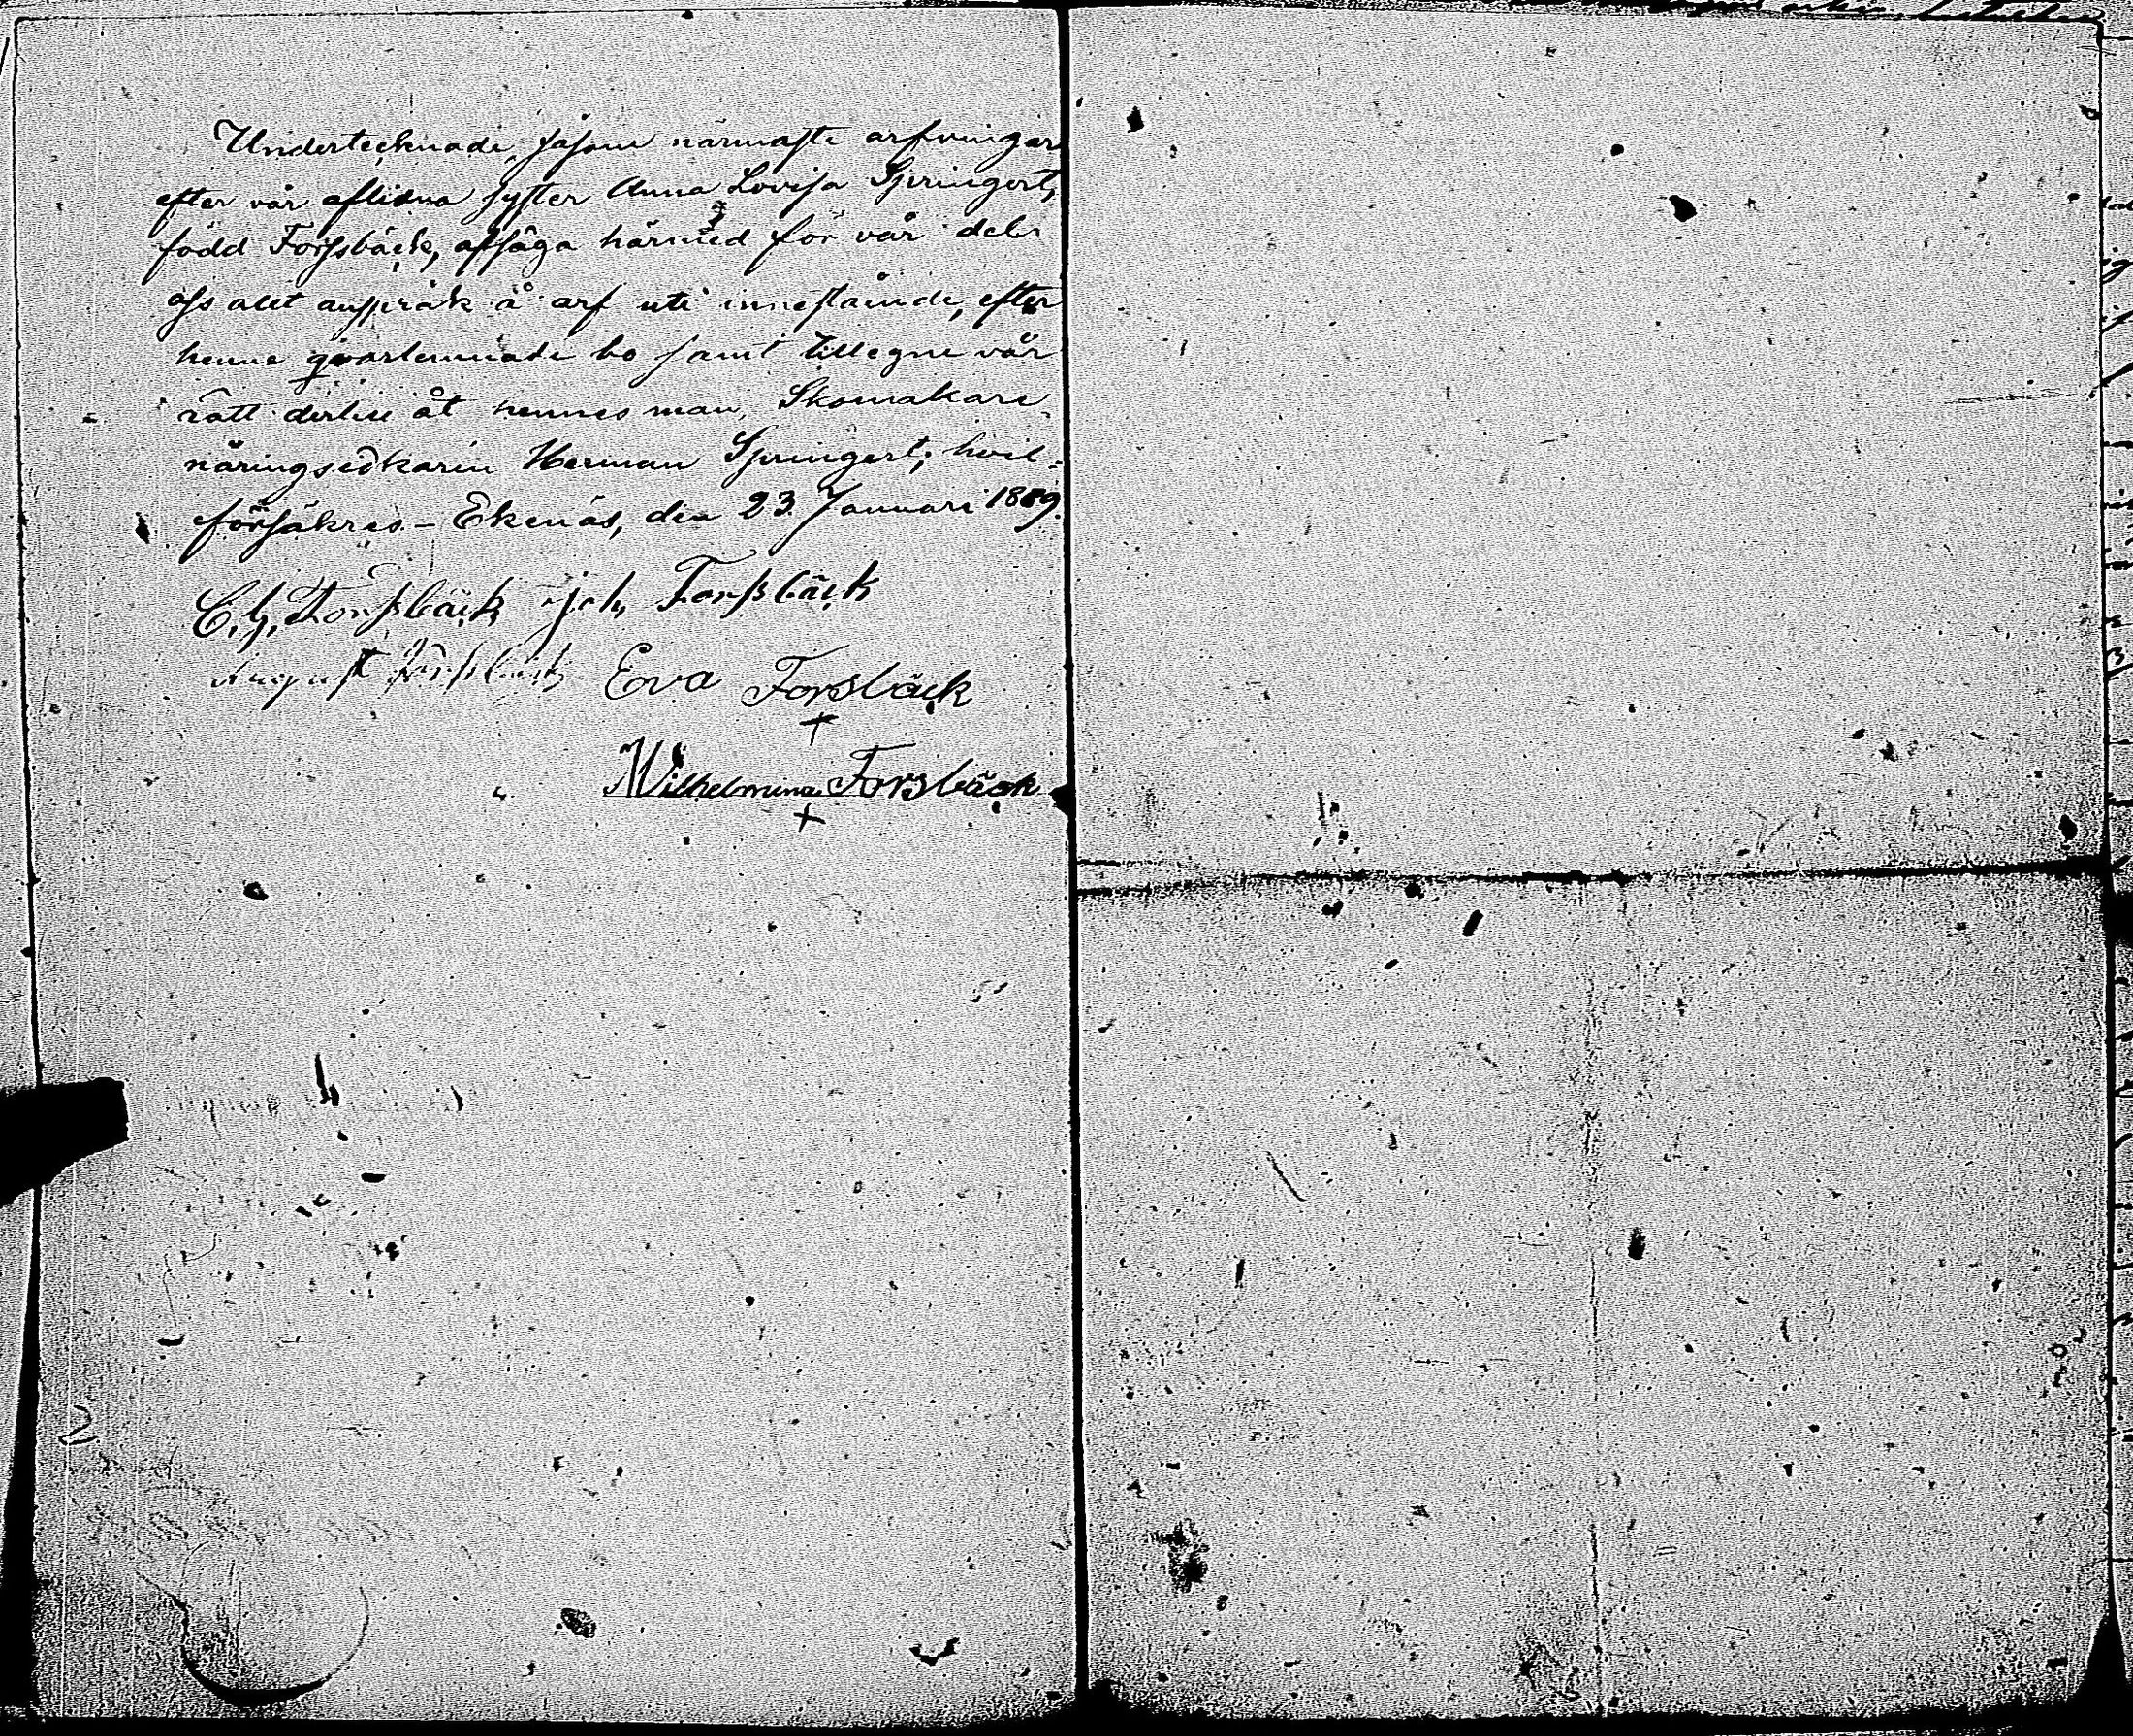 Undertecknade såsom närmaste arfvingar
efter vår aflidna syster Anna Lovisa Springert,
född Forssbäck, afsäga härmed för vår del
oss allt anspråk å arf uti inneståënde, efter
henne qvarlemnade bo samt tillegne vår
rätt dertill åt hennes man, Skomakare
näringsidkaren Herman Springert; hvil-
försäkras. – Ekenäs, den 23 Januari 1889.
C. G. Forssbäck Joh, Forssbäck
August Forssbäck Eva Forsbäck
+
Wilhelmina Forsbäck
+